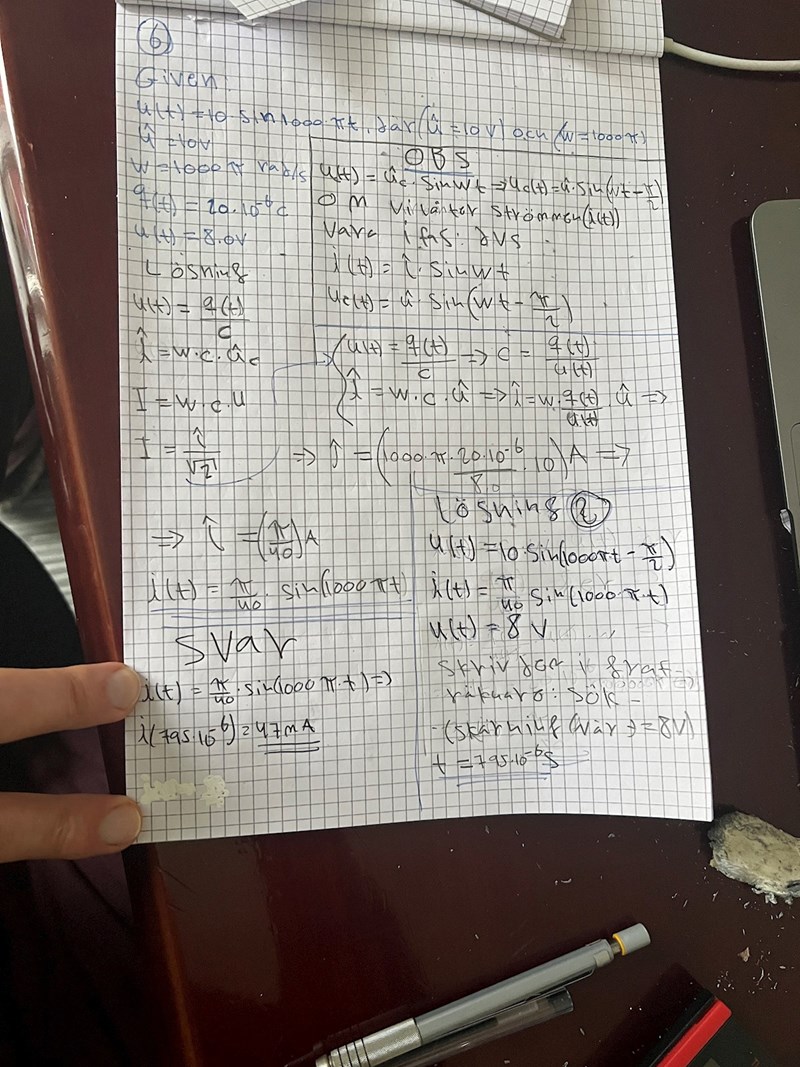 6
Given:
u(t) = 10 sin 1000·πt, där (û = 10V) och (w = 1000π)
û = 10V
w = 1000π rad/s
q(t) = 20·10⁻⁶ C
u(t) = 8.0V
Lösning
u(t) = q(t)/C
î = w·c·ûc
I = w·c·u
I = î/√2
OBS
u(t) = ûc·sin wt ⇒ uc(t) = û·sin(wt − π/2)
om vi väntar strömmen (i(t))
vara i fas: dvs :
i(t) = î·sin wt
uc(t) = û·sin(wt − π/2)
u(t) = q(t)/c ⇒ c = q(t)/u(t)
î = w·c·û ⇒ î = w·q(t)/u(t)·û ⇒
⇒ î = (1000·π·20·10⁻⁶/8,0·10)A ⇒
⇒ î = (π/40)A
i(t) = π/40 · sin(1000πt)
Svar
i(t) = π/40·sin(1000π·t) ⇒
i(795·10⁻⁶) = 47mA
Lösning 2
u(t) = 10·sin(1000πt − π/2)
i(t) = π/40 sin(1000·π·t)
u(t) = 8 V
skriv i graf-
räknare: sök
(skärning (när y = 8V)
t = 795·10⁻⁶s